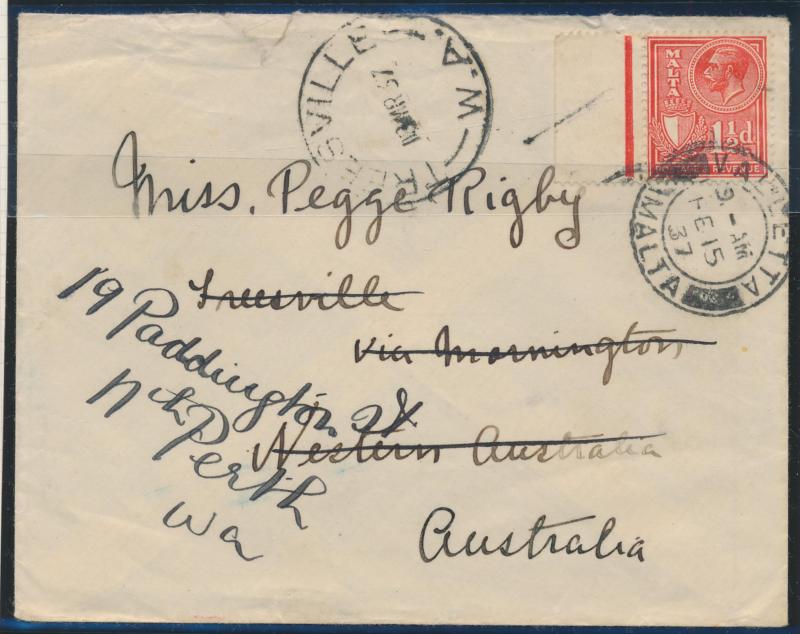 MALTA
1½d
POSTAGE & REVENUE
VALLETTA
9-AM
FE 15
37
MALTA
W.A.
MR 37
Miss. Pegge Rigby
Treesville
via Mornington
Western Australia
Australia
19 Paddington St
Nth Perth
Wa